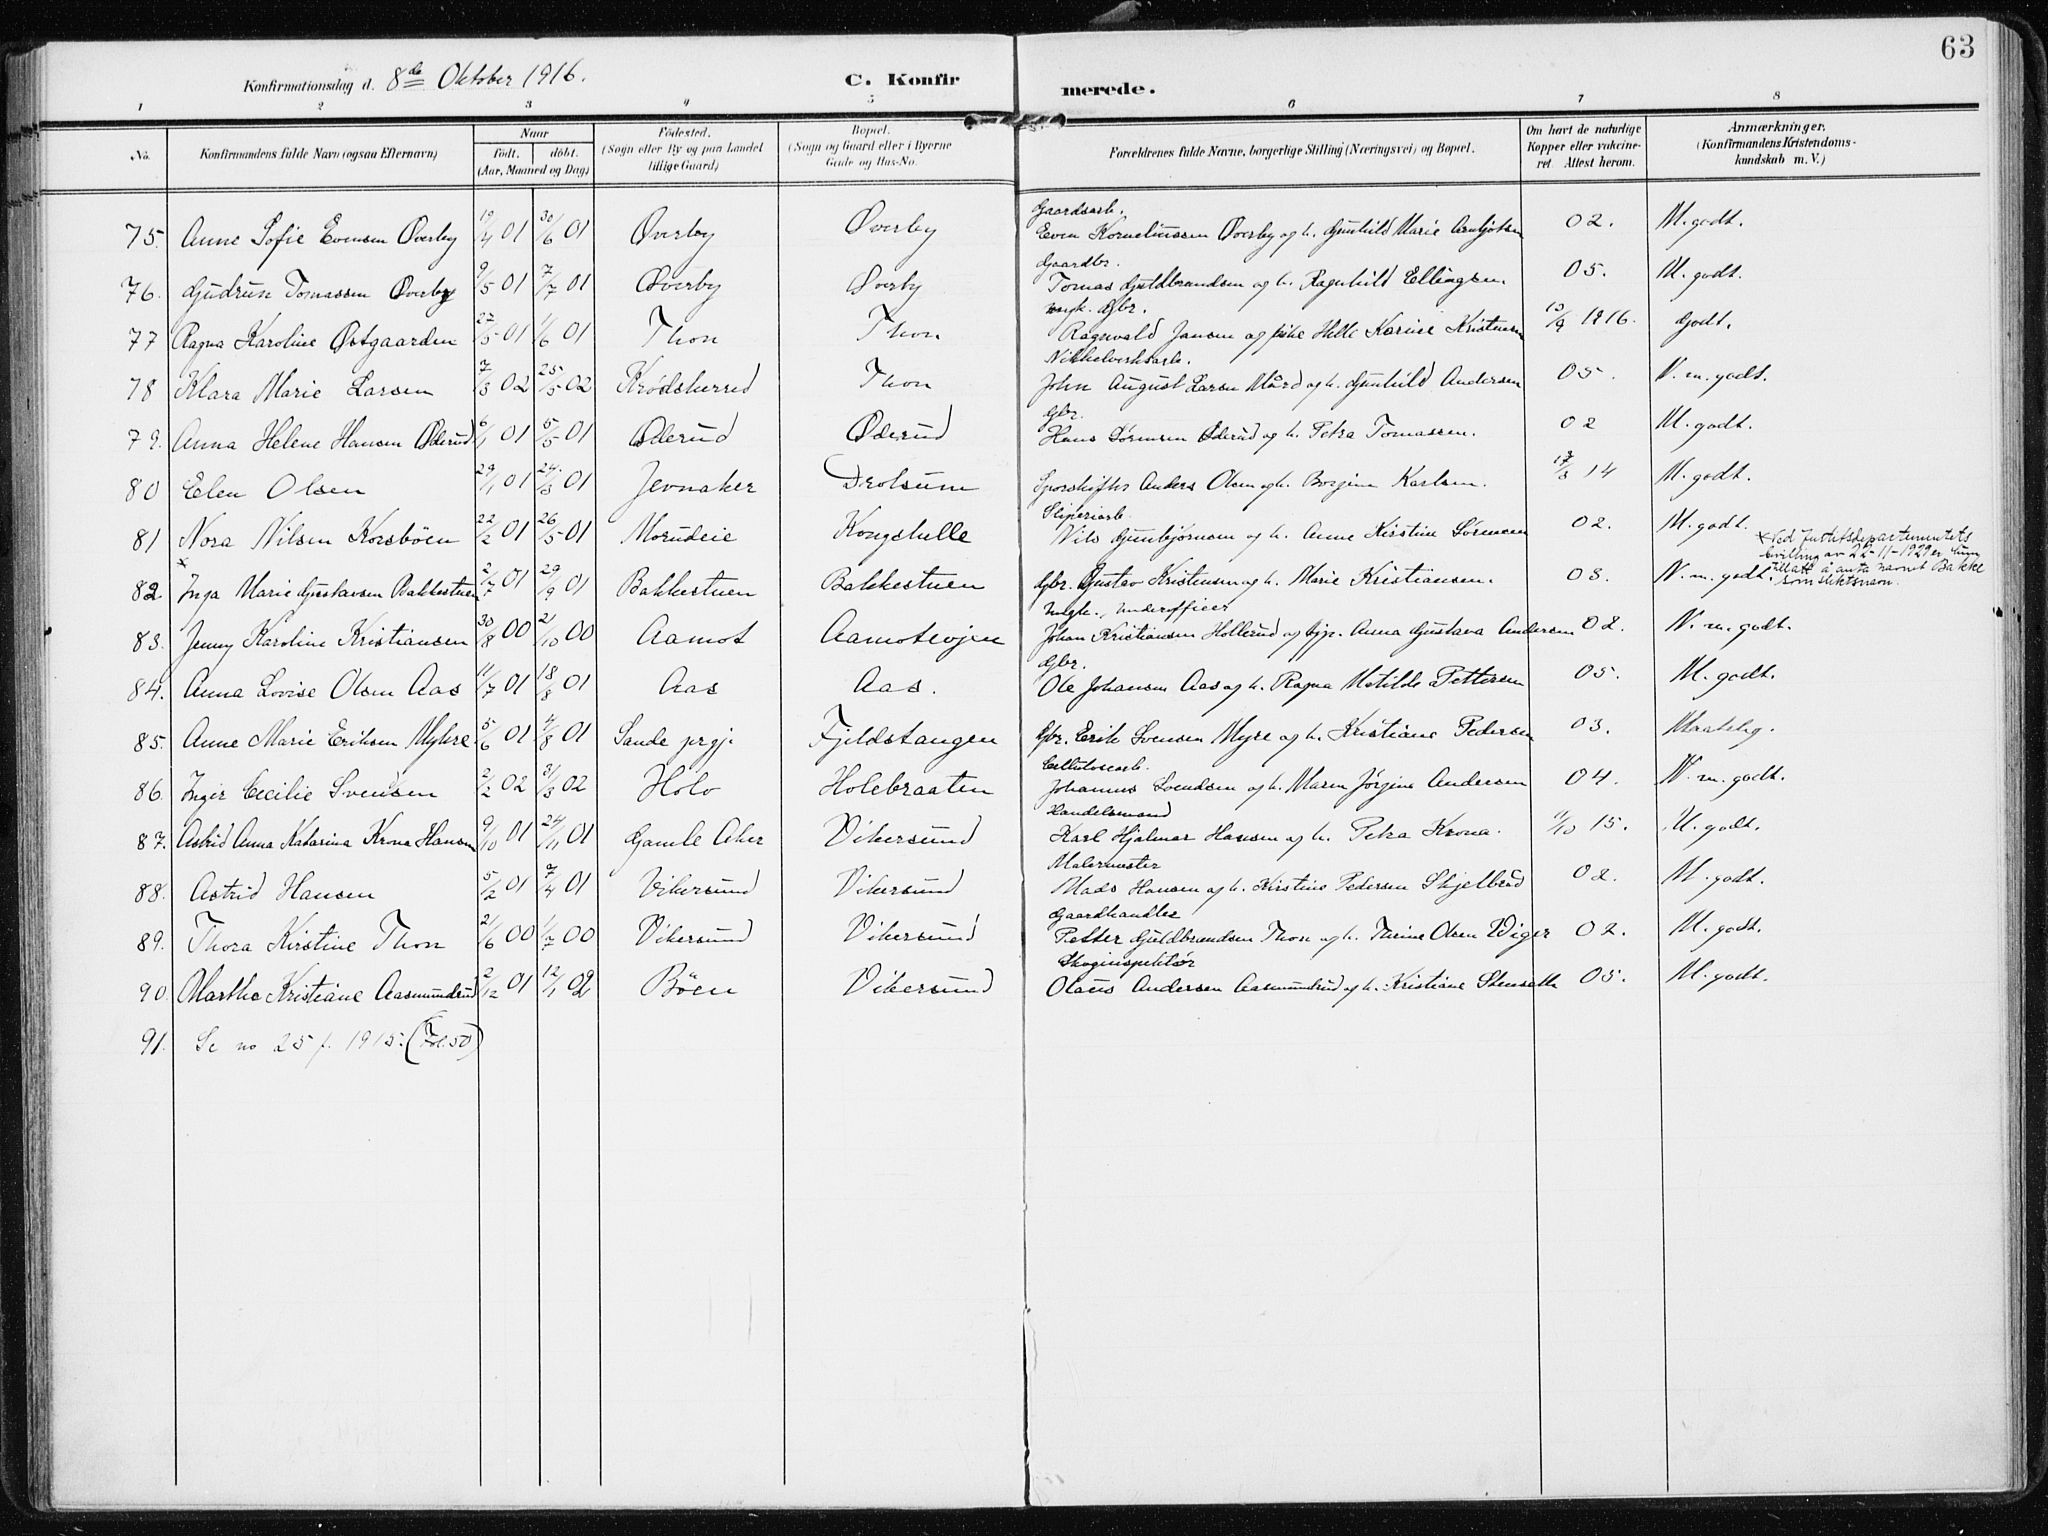 63
Konfirmationsdag d. 8de Oktober 1916. C. Konfirmerede.
1 2 3 4 5 6 7 8
No. Konfirmandens fulde Navn (ogsaa Efternavn) Naar født. døbt. (Aar, Maaned og Dag) Fødested. (Sogn eller By og paa Landet tillige Gaard) Bopæl. (Sogn og Gaard eller i Byerne Gade og Hus-No. Forældrenes fulde Navne, borgerlige Stilling (Næringsvei) og Bopæl. Om havt de naturlige Kopper eller vakcineret Attest herom. Anmærkninger. (Konfirmandens Kristendomskundskab m. V.)
Gaardsarb.
75. Anne Sofie Evensen Øverby 19/4 01 30/6 01 Øverby Øverby Even Korneliussen Øverby og h. Gunhild Marie Arntjotsen 02. M. godt.
Gaardbr.
76. Gudrun Tomassen Øverby 9/5 01 7/7 01 Øverby Øverby Tomas Guldbrandsen og h. Ragnhild Ellingsen. 05. M. godt.
ungk. Gbr.
77 Ragna Karoline Østgaarden 27/5 01 1/6 01 Thon Thon Ragnvald Jansen og pike Helle Karine Kristensen 13/9 1916. Godt.
Nikkelverksarb.
78 Klara Marie Larsen 7/3 02 25/5 02 Krødsherred Thon John August Larsen Mård og h. Gunhild Andersen 05. N. m. godt.
Gbr.
79. Anna Helene Hansen Øderud 6/1 01 5/5 01 Øderud Øderud Hans Sørensen Øderud og h. Petra Tomassen. 02 M. godt.
80 Elen Olsen 29/1 01 24/3 01 Jevnaker Drolsum Sporskifter Anders Olsen og h. Borgine Karlsen. 17/3 14 M. godt.
Sliperiarb.
81 Nora Nilsen Korsbøen 22/2 01 26/5 01 Morudeie Kongshelle Nils Gunbjørnsen og h. Anne Kirstine Sørensen 02. M. godt.
× Ved Justitsdepartementets
bevilling av 22-11-1929 er hun
tillatt å anta navnet Bakke
som slektsnavn.
×
82 Inga Marie Gustavsen Bakkestuen 2/7 01 29/9 01 Bakkestuen Bakkestuen Gbr. Gustav Kristensen og h. Marie Kristiansen. 03. N. m. godt.
Ungk., Underofficer
83. Jenny Karoline Kristiansen 30/8 00 21/10 00 Aamot Aamotevjen Johan Kristiansen Hollerud og pp. Anna Gustava Andersen 02. N. m. godt.
Gbr.
84. Anna Lovise Olsen Aas 11/7 01 18/8 01 Aas Aas. Ole Johansen Aas og h. Ragna Matilde Pettersen 05. M. godt.
85. Anne Marie Eriksen Myhre 5/6 01 4/8 01 Sande prgj. Fjeldstangen Gbr. Erik Svensen Myre og h. Kristiane Pedersen 03. Maatelig.
Cellulosearb.
86. Inger Cecilie Svensen 2/2 02 31/3 02 Holo Holebraaten Johannes Svendsen og h. Maren Jørgine Andersen 04. N. m. godt.
Handelsmand
87. Astrid Anna Katarina Krona Hansen 9/10 01 24/11 01 Gamle Aker Vikersund Karl Hjalmar Hansen og h. Petra Krona. 11/10 15. M. godt.
Malermester
88. Astrid Hansen 5/2 01 7/4 01 Vikersund Vikersund Mads Hansen og h. Kirstine Pedersen Skjelbred 02. M. godt.
Gaardhandler
89. Thora Kirstine Thon 21/6 00 1/7 00 Vikersund Vikersund Petter Guldbrandsen Thon og h. Turine Olsen Wiger 02. M. godt.
Skoginspektør
90. Marthe Kristiane Aasmundrud 2/12 01 12/1 02 Bøen Vikersund Olaus Andersen Aasmundrud og h. Kristiane Stenseth 05. M. godt.
91. Se no 25 f. 1915. (Fol. 50)